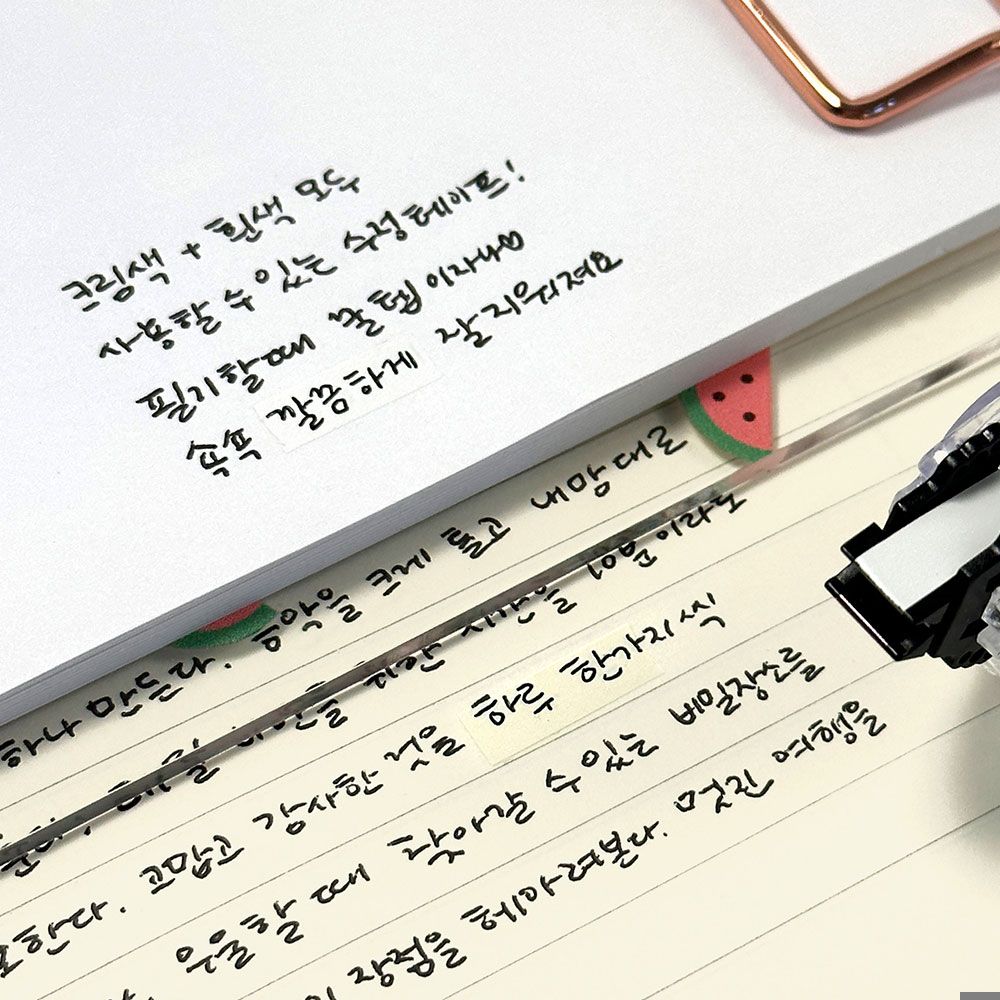 크림색 + 흰색 모두
사용할 수 있는 수정테이프!
필기할때 꿀템이자나♡
쏙쏙 깔끔하게 잘 지워져요
하나 만든다. 음악을 크게 틀고 내맘대로
시간을 10분이라도
한다. 고맙고 감사한 것을 하루 한가지씩
우울할 때 찾아갈 수 있는 비밀장소를
장점을 헤아려본다. 멋진 여행을